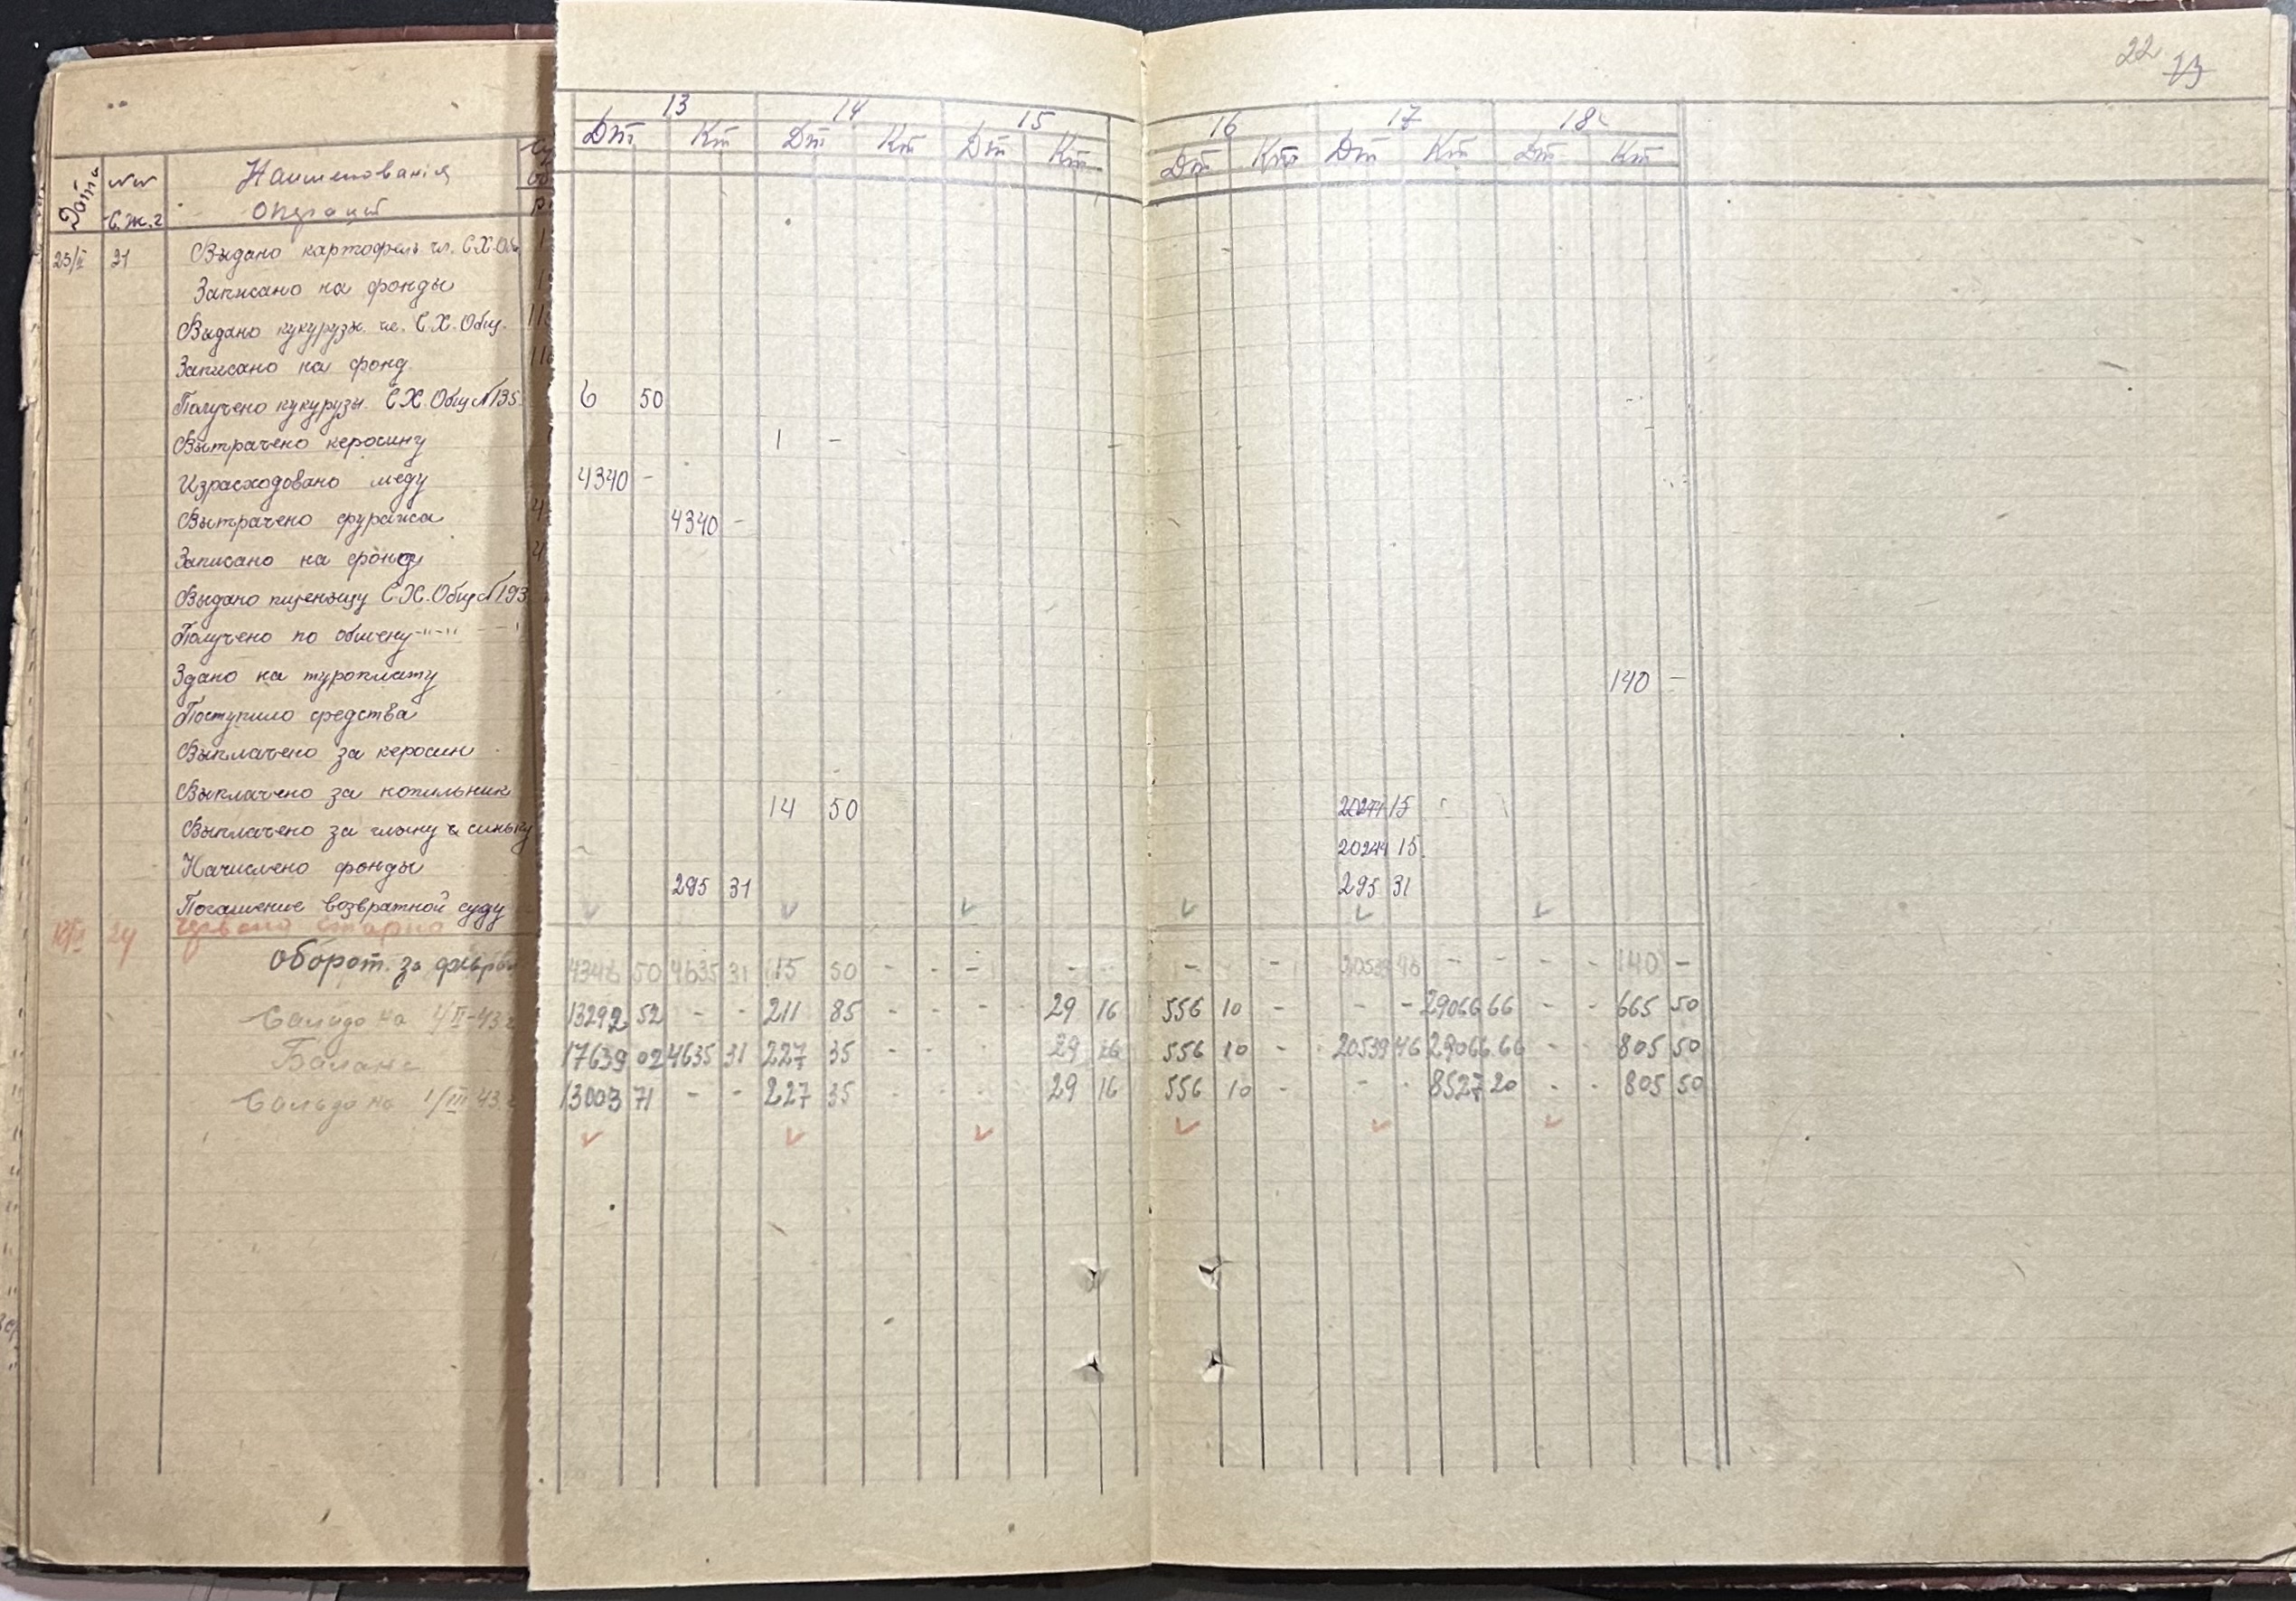 22 13
13 14 15 16 17 18
Дт Кт Дт Кт Дт Кт Дт Кт Дт Кт Дт Кт
Дата №№ С.Ж.г Наименованія
Операций
23/II 21 Выдано картофель чл. С.Х.Общ.
Записано на фонды
Выдано кукурузы чл. С.Х.Общ.
Записано на фонд
Получено кукурузы С.Х.Общ №135 6 50
Вытрачено керосину 1 -
Израсходовано меду 4340 -
Вытрачено фуража 4340 -
Записано на фонд
Выдано пшеницу С.Х.Общ №193
Получено по обмену -"-"-
Здано на туроплату 140 -
Поступило средства
Выплачено за керосин
Выплачено за копильник 14 50 20244 15
Выплачено за глину и синьку 20244 15
Начислено фонды 295 31 295 31
Погашение возвратной суду
24
оборот. за февра 4346 50 4635 31 15 50 - - - - - - - 20539 46 - - - - 140 -
Сальдо на 1/II-43 г 13292 52 - - 211 85 - - - 29 16 556 10 - - - 29066 66 - - 665 50
Баланс 17639 02 4635 31 227 35 - - - 29 16 556 10 - 20539 46 29066 66 - - 805 50
Сальдо на 1/III 43 г 13003 71 - - 227 35 - - - 29 16 556 10 - - - 8527 20 - - 805 50